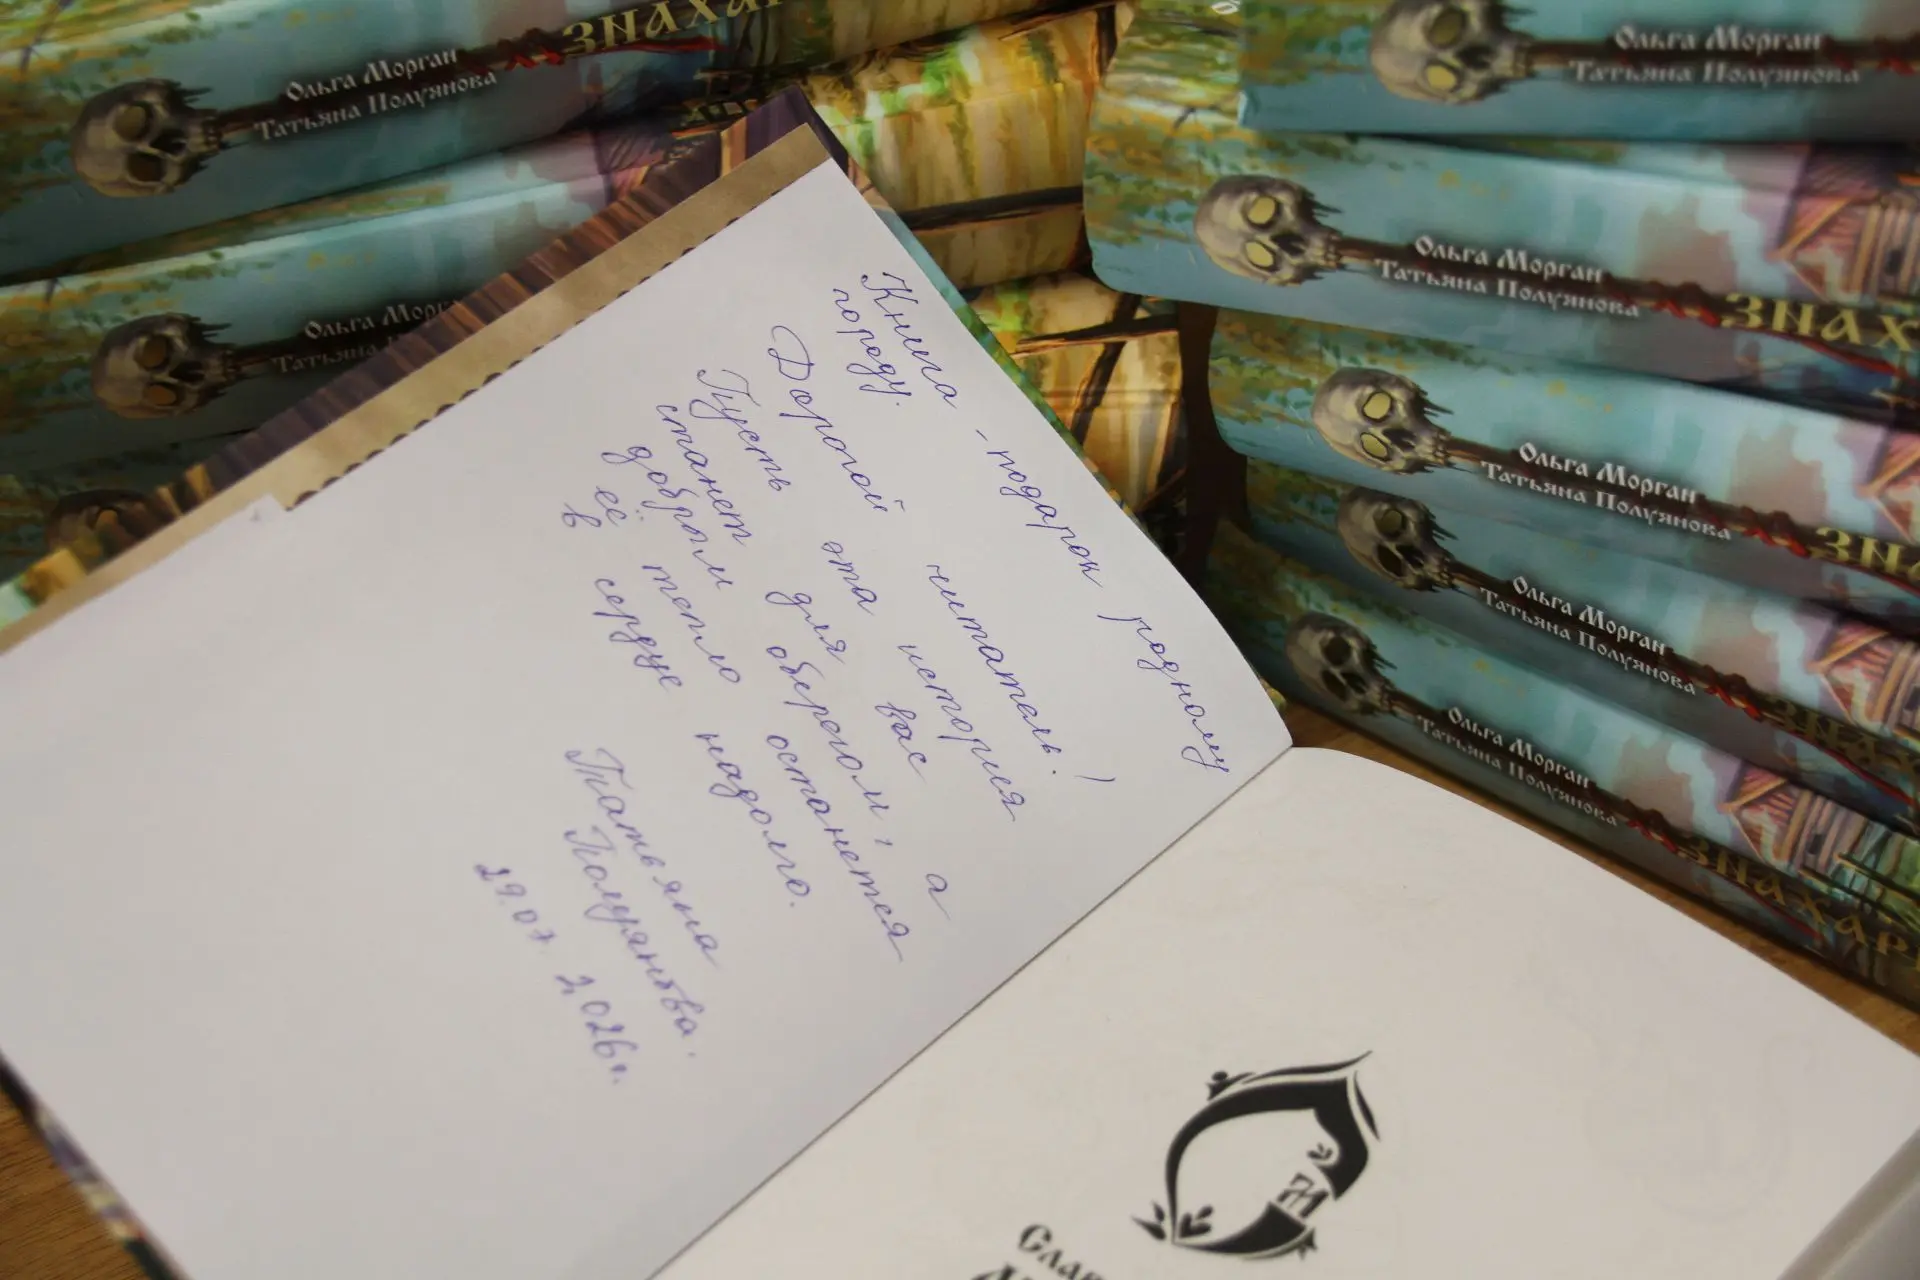 Ольга Морган
Татьяна Полуянова
ЗНАХАР
Ольга Морг
Татьяна
Ольга Морган
Татьяна Полуянова
Ольга Морган
Татьяна Полуянова
ЗНАХ
Ольга Морган
Татьяна Полуянова
ЗНА
Ольга Морган
Татьяна Полуянова
ЗНАХ
Ольга Морган
Татьяна Полуянова
ЗНАХАР
Книга - подарок родному
городу.
Дорогой читатель!
Пусть эта история
станет для вас
добрым оберегом, а
её тепло останется
в сердце надолго.
Татьяна
Полуянова.
29.07. 2026г.
Слав